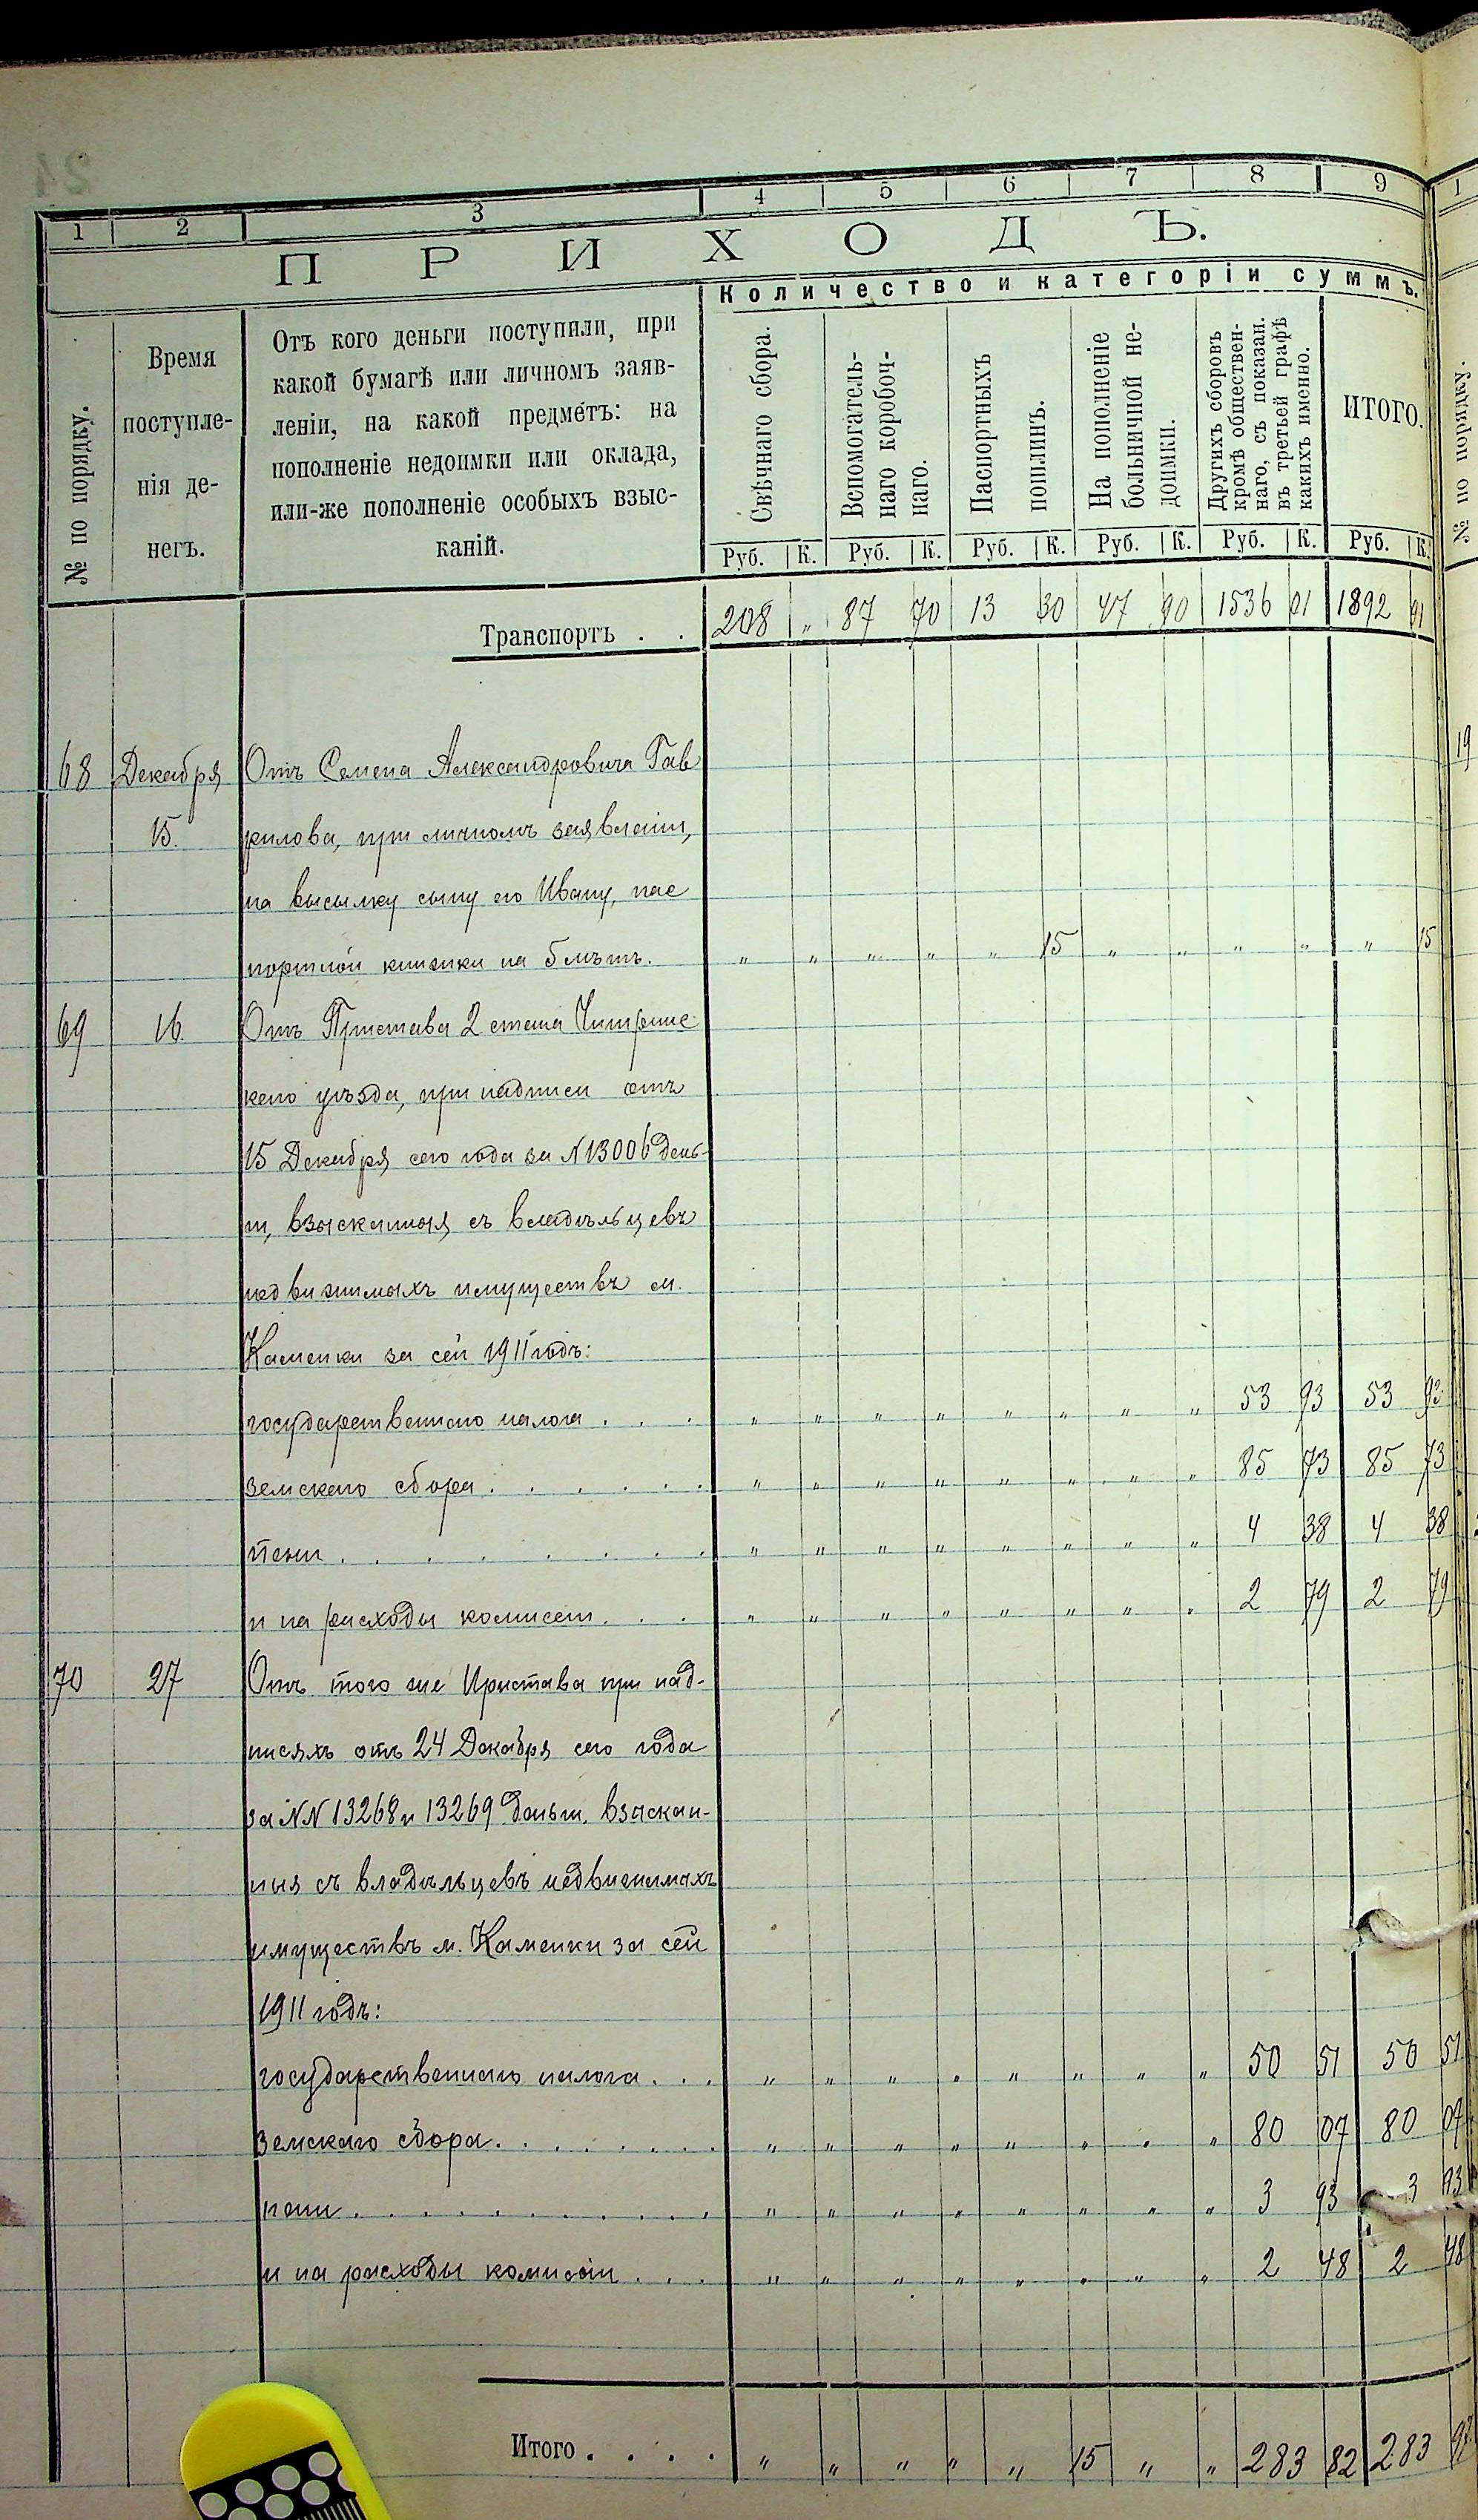 1 2 3 4 5 6 7 8 9
ПРИХОДЪ.
Количество и категоріи суммъ.
№ по порядку.
Время поступле-
нія де-
негъ.
Отъ кого деньги поступили, при
какой бумагѣ или личномъ заяв-
леніи, на какой предметъ: на
пополненіе недоимки или оклада,
или-же пополненіе особыхъ взыс-
каній.
Свѣчнаго сбора.
Вспомогатель-
наго коробоч-
наго.
Паспортныхъ
пошлинъ.
На пополненіе
больничной не-
доимки.
Другихъ сборовъ
кромѣ обществен-
наго, съ показан.
въ третьей графѣ
какихъ именно.
ИТОГО.
Руб. К. Руб. К. Руб. К. Руб. К. Руб. К. Руб. К.
Транспортъ . . 208 „ 87 70 13 30 47 90 1536 01 1892 91
68 Декабря Отъ Семена Александровича Гав
15. рилова, при личномъ заявленіи,
на высылку сыну его Ивану, пас
портной книжки на 5 лѣтъ. „ „ „ „ „ 15 „ „ „ „ „ 15
69 16. Отъ Пристава 2 стана Чигринс
каго уѣзда, при надписи отъ
15 Декабря сего года за N 13006 день-
ги, взысканныя съ владѣльцевъ
недвижимыхъ имуществъ м.
Каменки за сей 1911 годъ:
государственнаго налога . . . „ „ „ „ „ „ „ „ 53 93 53 93
земскаго сбора . . . . . . „ „ „ „ „ „ „ „ 85 73 85 73
пени . . . . . . . . „ „ „ „ „ „ „ „ 4 38 4 38
и на расходы комисіи . . . „ „ „ „ „ „ „ „ 2 79 2 79
70 27 Отъ того же Пристава при над-
писяхъ отъ 24 Декабря сего года
за NN 13268 и 13269 деньги, взыскан-
ныя съ владѣльцевъ недвижимыхъ
имуществъ м. Каменки за сей
1911 годъ:
государственнаго налога . . . „ „ „ „ „ „ „ „ 50 51 50 51
земскаго сбора . . . . . . . „ „ „ „ „ „ „ „ 80 07 80 07
пени . . . . . . . . . . . „ „ „ „ „ „ „ „ 3 93 3 93
и на расходы комисіи . . . „ „ „ „ „ „ „ „ 2 48 2 48
Итого . . . . „ „ „ „ „ 15 „ „ 283 82 283 97